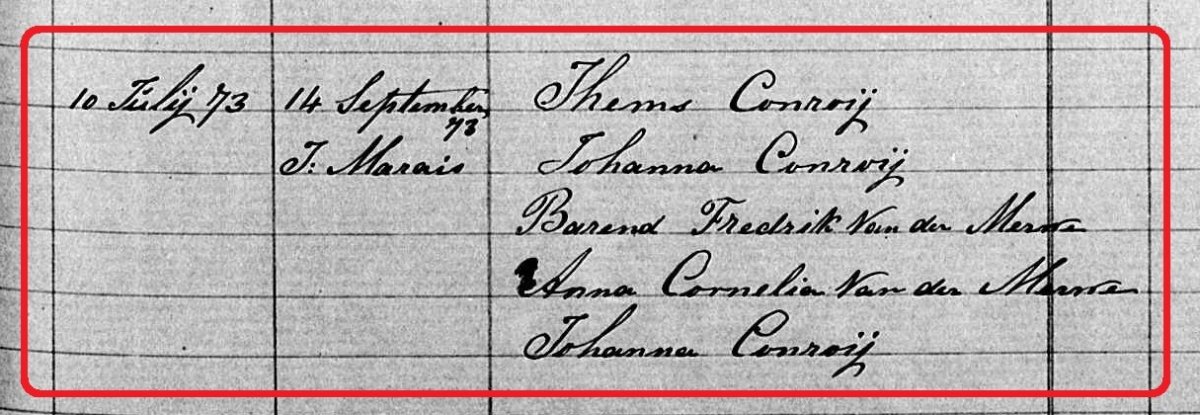 10 Július 73 14 September 73 Thems Conroij
J: Marais Johanna Conroij
Barend Fredrik Van der Merwe
Anna Cornelia Van der Merwe
Johanna Conroij